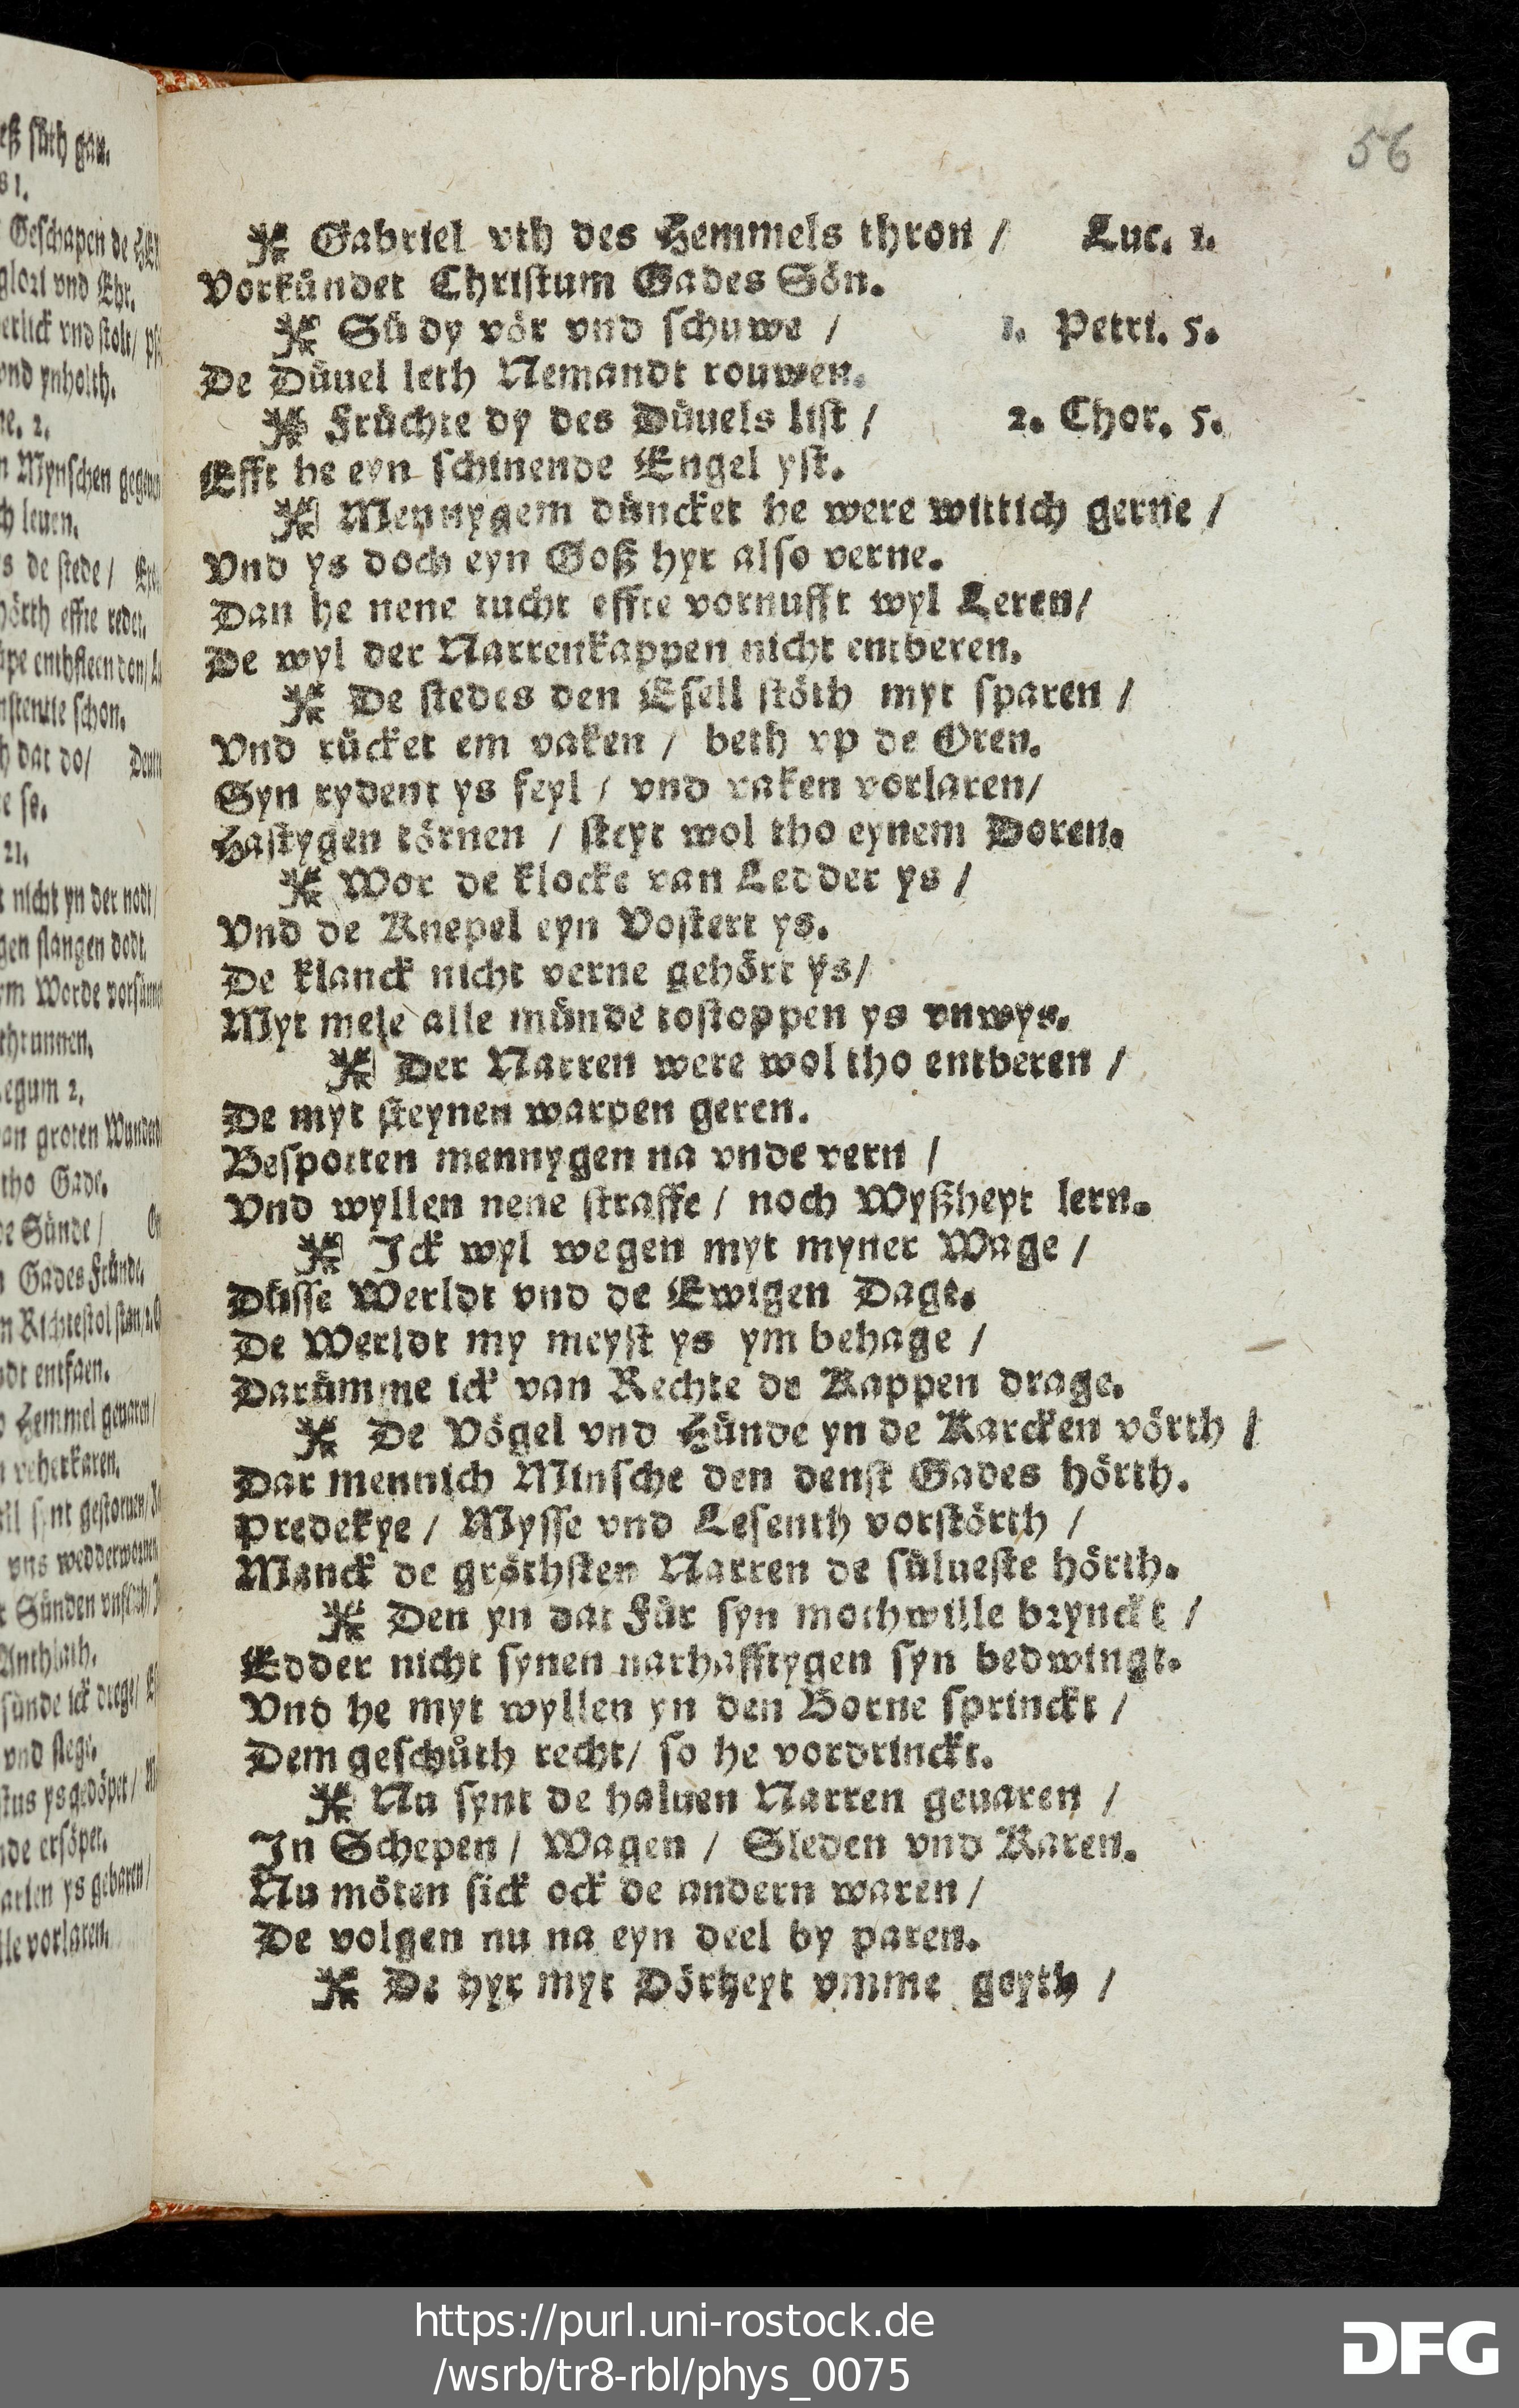 56
Gabriel vth des Hemmels thron / Luc. 1.
Vorkündet Christum Gades Sön.
Sü dy vör vnd schuwe / 1. Petri. 5.
De Düuel leth Nemandt rouwen.
Früchte dy des Düuels list / 2. Chor. 5.
Efft he eyn schinende Engel yst.
Mennygem düncket he were wittich gerne /
Vnd ys doch eyn Goß hyr also verne.
Dan he nene tucht effte vornufft wyl Leren/
De wyl der Narrenkappen nicht entberen.
De stedes den Esell stöth myt sparen /
Vnd rücket em vaken / beth vp de Oren.
Syn rydent ys feyl / vnd vaken vorlaren/
Hastygen törnen / steyt wol tho eynem Doren.
Wor de klocke van Ledder ys /
Vnd de Knepel eyn Vostert ys.
De klanck nicht verne gehört ys/
Myt mele alle münde tostoppen ys vnwys.
Der Narren were wol tho entberen /
De myt steynen warpen geren.
Bespotten mennygen na vnde vern /
Vnd wyllen nene straffe / noch Wyßheyt lern.
Ick wyl wegen myt myner Wage /
Düsse Werldt vnd de Ewigen Dage.
De Werldt my meyst ys ym behage /
Darümme ick van Rechte de Kappen drage.
De Vögel vnd Hünde yn de Karcken vörth /
Dar mennich Minsche den denst Gades hörth.
Predekye / Mysse vnd Lesenth vorstörth /
Manck de gröthsten Narren de sülueste hörth.
Den yn dat Für syn mothwille brynckt /
Edder nicht synen narhafftygen syn bedwingt.
Vnd he myt wyllen yn den Borne sprinckt /
Dem geschüth recht/ so he vordrinckt.
Nu synt de haluen Narren geuaren /
In Schepen / Wagen / Sleden vnd Karen.
Nu möten sick ock de andern waren /
De volgen nu na eyn deel by paren.
De hyr myt Dörheyt vmme geyth /
https://purl.uni-rostock.de
/wsrb/tr8-rbl/phys_0075
DFG